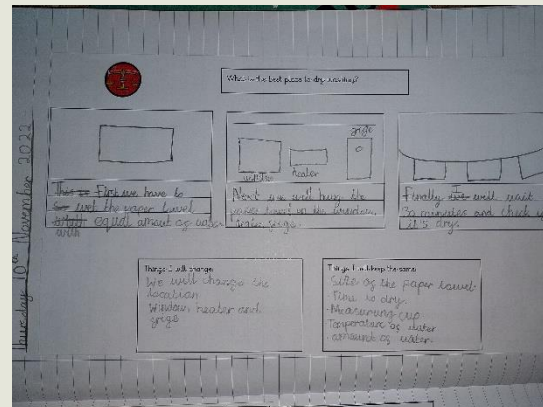 Thursday 10th November 2022
What is the best place to dry washing?
window
heater
This is First we have to
wet the paper towel
equal amount of water
with
Next we will hang the
paper towel on the window,
Finally I will wait
30 minutes and check
it's dry.
Things I will change:
We will change the
location
Window, heater and
Things I will keep the same:
Size of the paper towel
Time to dry.
Measuring cup
Temperature of water
amount of water